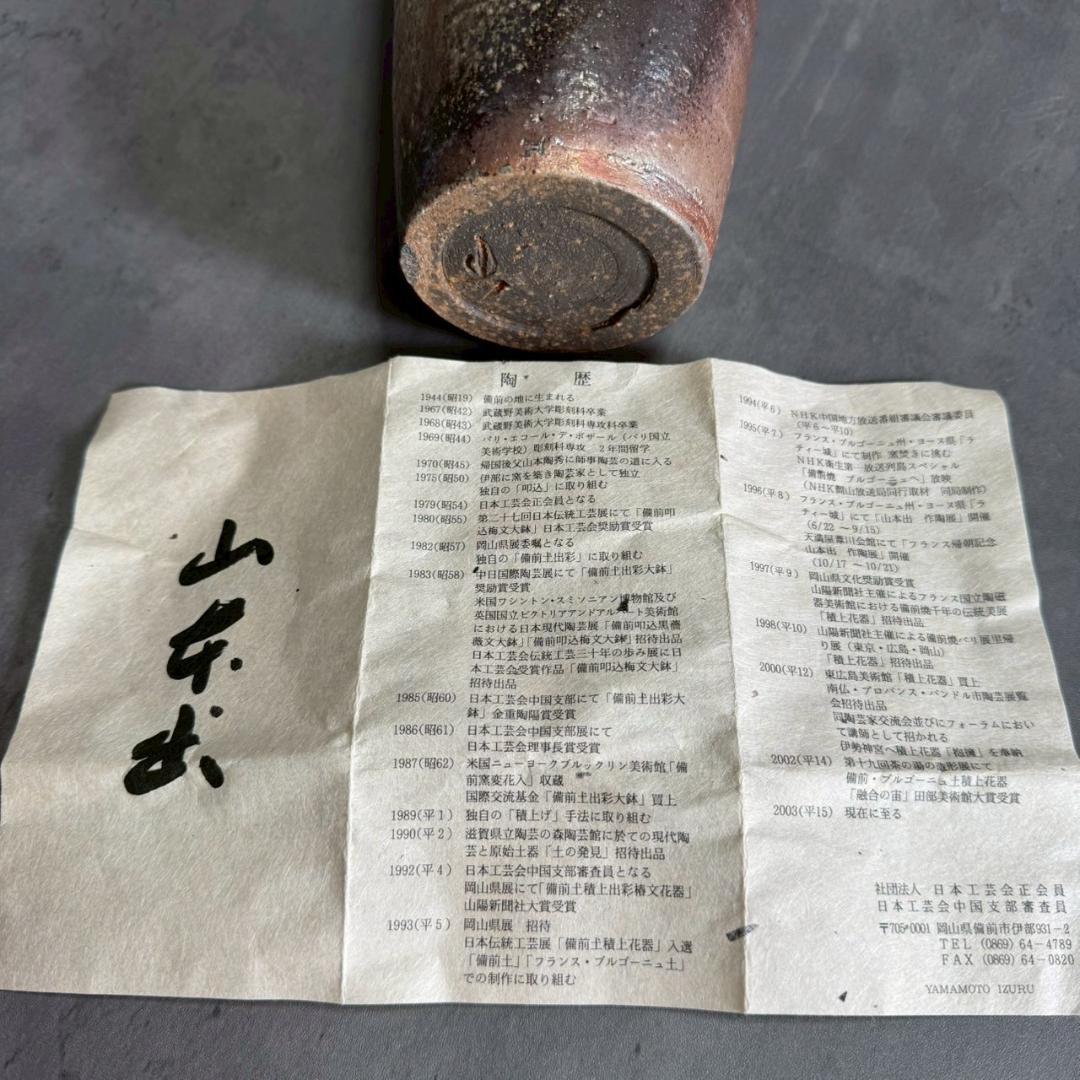 山本出
陶 歴
1944(昭19) 備前の地に生まれる
1967(昭42) 武蔵野美術大学彫刻科卒業
1968(昭43) 武蔵野美術大学彫刻科専攻科卒業
1969(昭44) パリ・エコール・デ・ボザール(パリ国立
美術学校)彫刻科専攻 2年間留学
1970(昭45) 帰国後父山本陶秀に師事陶芸の道に入る
1975(昭50) 伊部に窯を築き陶芸家として独立
独自の「叩込」に取り組む
1979(昭54) 日本工芸会正会員となる
1980(昭55) 第二十七回日本伝統工芸展にて「備前叩
込梅文大鉢」日本工芸会奨励賞受賞
1982(昭57) 岡山県展委嘱となる
独自の「備前土出彩」に取り組む
1983(昭58) 中日国際陶芸展にて「備前土出彩大鉢」
奨励賞受賞
米国ワシントン・スミソニアン博物館及び
英国国立ビクトリアアンドアルバート美術館
における日本現代陶芸展「備前叩込黒薔
薇文大鉢」「備前叩込梅文大鉢」招待出品
日本工芸会伝統工芸三十年の歩み展に日
本工芸会受賞作品「備前叩込梅文大鉢」
招待出品
1985(昭60) 日本工芸会中国支部にて「備前土出彩大
鉢」金重陶陽賞受賞
1986(昭61) 日本工芸会中国支部展にて
日本工芸会理事長賞受賞
1987(昭62) 米国ニューヨークブルックリン美術館「備
前窯変花入」収蔵
国際交流基金「備前土出彩大鉢」買上
1989(平1) 独自の「積上げ」手法に取り組む
1990(平2) 滋賀県立陶芸の森陶芸館に於ての現代陶
芸と原始土器「土の発見」招待出品
1992(平4) 日本工芸会中国支部審査員となる
岡山県展にて「備前土積上出彩椿文花器」
山陽新聞社大賞受賞
1993(平5) 岡山県展 招待
日本伝統工芸展「備前土積上花器」入選
「備前土」「フランス・ブルゴーニュ土」
での制作に取り組む
1994(平6) NHK中国地方放送番組審議会審議委員
(平6〜平10)
1995(平7) フランス・ブルゴーニュ州・ヨーヌ県「ラ
ティー城」にて制作 窯焚きに挑む
NHK衛生第一放送列島スペシャル
「備前焼 ブルゴーニュへ」放映
(NHK岡山放送局同行取材 同局制作)
1996(平8) フランス・ブルゴーニュ州・ヨーヌ県「ラ
ティー城」にて「山本出 作陶展」開催
(6/22〜9/15)
天満屋葦川会館にて「フランス帰朝記念
山本出 作陶展」開催
(10/17〜10/21)
1997(平9) 岡山県文化奨励賞受賞
山陽新聞社主催によるフランス国立陶磁
器美術館における備前焼千年の伝統美展
「積上花器」招待出品
1998(平10) 山陽新聞社主催による備前焼パリ展里帰
り展(東京・広島・岡山)
「積上花器」招待出品
2000(平12) 東広島美術館「積上花器」買上
南仏・プロバンス・バンドル市陶芸展覧
会招待出品
同陶芸家交流会並びにフォーラムにおい
て講師として招かれる
伊勢神宮へ積上花器「抱擁」を奉納
2002(平14) 第十九回茶の湯の造形展にて
備前・ブルゴーニュ土積上花器
「融合の宙」田部美術館大賞受賞
2003(平15) 現在に至る
社団法人 日本工芸会正会員
日本工芸会中国支部審査員
〒705-0001 岡山県備前市伊部931-2
TEL (0869) 64-4789
FAX (0869) 64-0820
YAMAMOTO IZURU